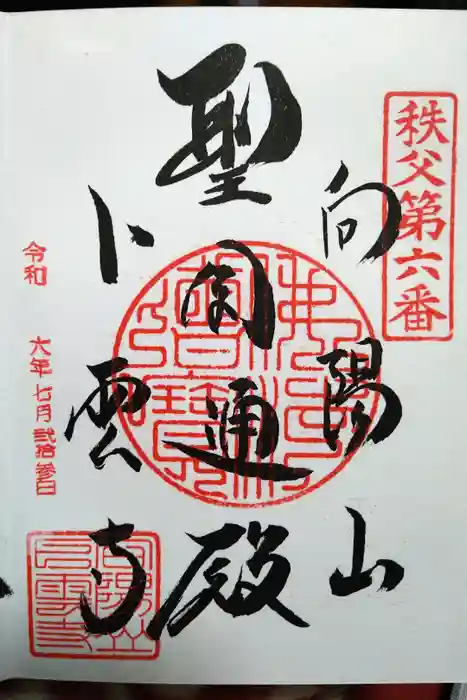 秩父第六番
向陽山
聖円通殿
卜雲寺
令和 六年 七月 弐拾参日